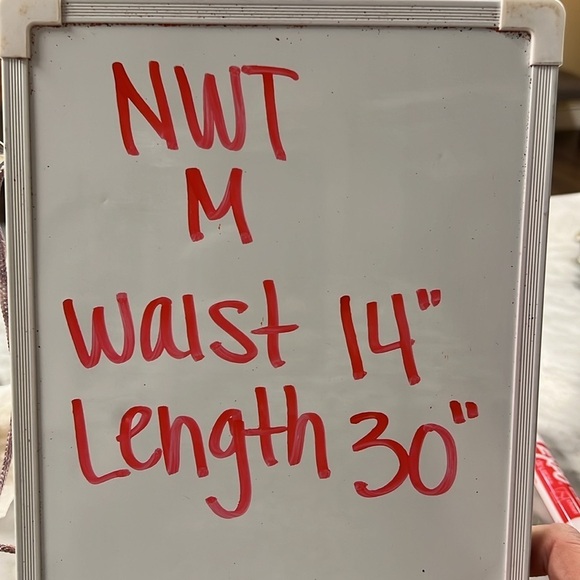 NWT
M
Waist 14"
Length 30"